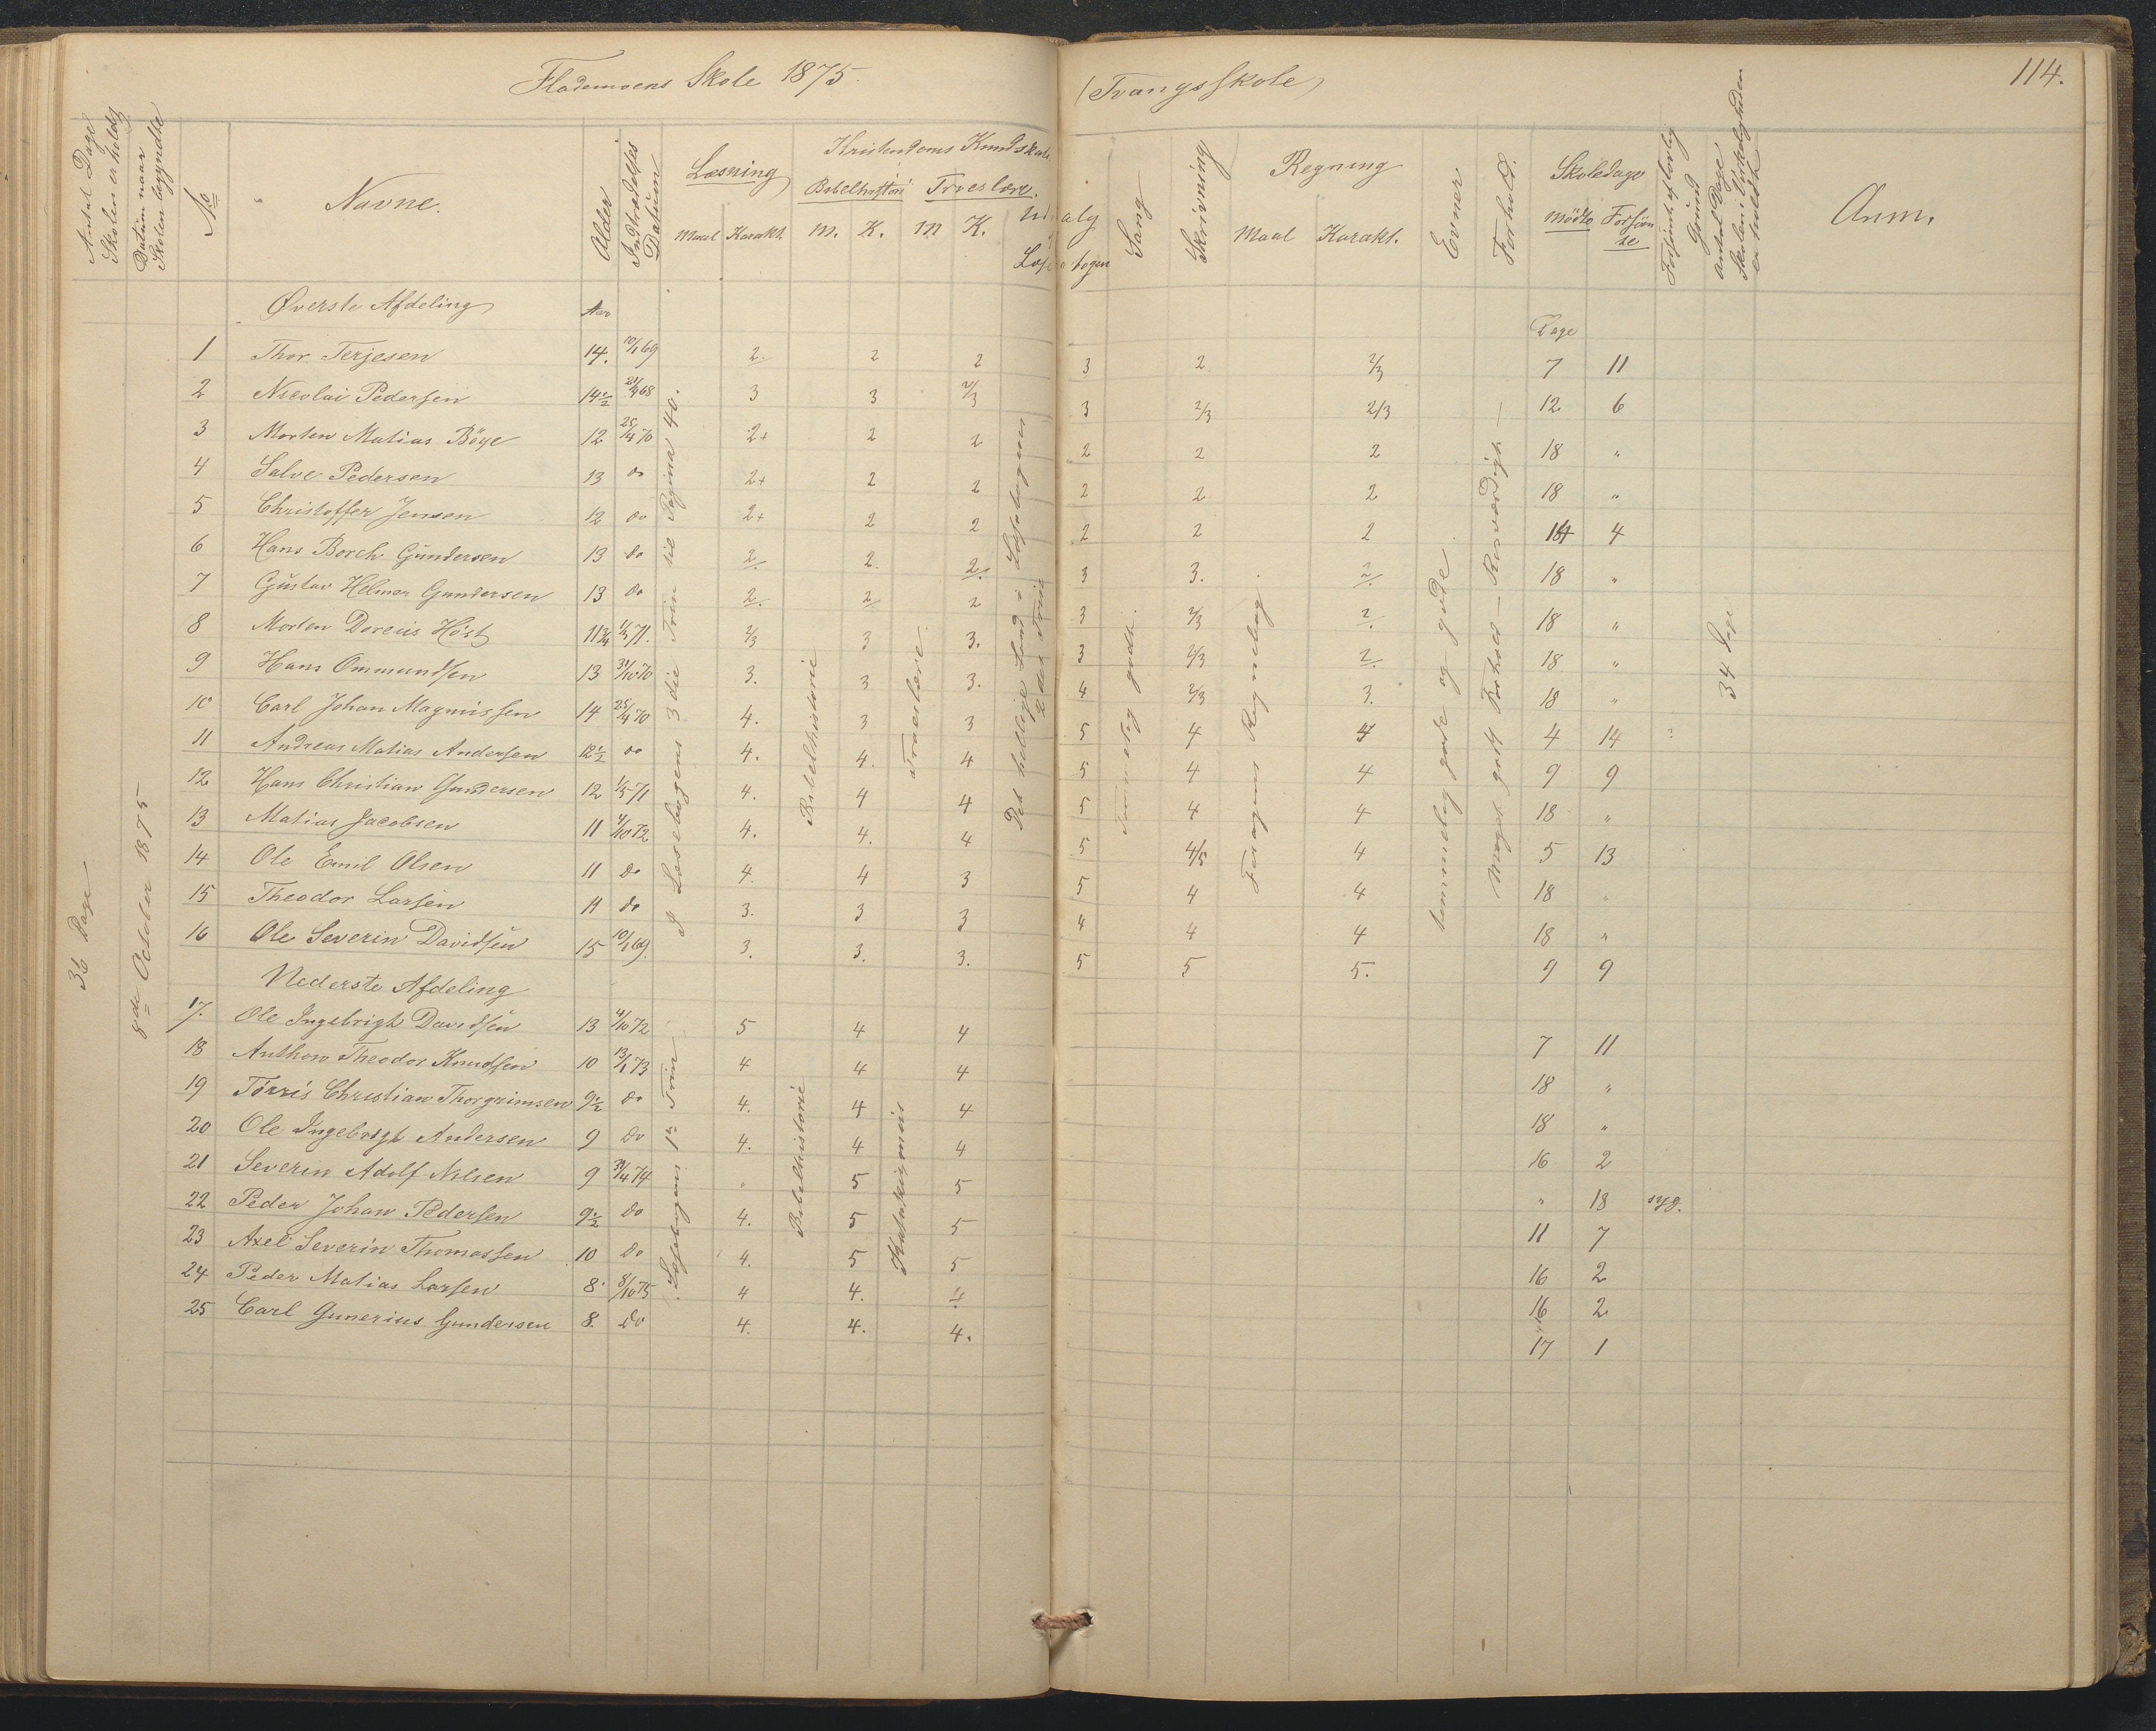 Flademoens Skole 1875.
(Tvangsskole)
114.
Antal Dage Skolen er holdt
Datum naar Skolen begyndte
No
Navne.
Alder
Indtrædelses Datum
Læsning
Maal Karakt.
Kristendoms Kundskab
Bibelhistori Troeslære.
M. K. M K.
Ud alg
Læse bogen
Sang
Skrivning
Regning
Maal Karakt.
Evner
Forhold.
Skoledage
Mødte Forsømte
Forsømt af lovlig Grund
Antal Dage Skolen i Virkeligheden er holdt
Anm.
Øverste Afdeling Aar Dage
1 Thor Terjesen 14. 10/1 69 2. 2 2 3 2 2/3 7 11
2 Nicolai Pedersen 14 1/2 21/4 68 3 3 2/3 3 2/3 2/3 12 6
3 Morten Matias Böye 12 25/4 70 2+ 2 2 2 2 2 18 "
4 Salve Pedersen 13 do 2+ 2 2 2 2 2 18 "
5 Christoffer Jensen 12 do 2+ 2 2 2 2 2 14 4
6 Hans Borch Gundersen 13 do 2. 2. 2. 3 3. 2. 18 "
7 Gustav Helmer Gundersen 13 do 2. 2 2 3 2/3 2. 18 "
8 Morten Doreius Höst 11 3/4 1/5 71. 2/3 3 3. 3 2/3 2. 18 "
9 Hans Ommundsen 13 31/10 70 3. 3 3. 4 2/3 3. 18 "
10 Carl Johan Magnussen 14 25/4 70 4. 3 3 5 4 4 4 14 :
11 Andreas Matias Andersen 12 1/2 do 4. 4. 4 5 4 4 9 9
12 Hans Christian Gundersen 12 1/5 71 4. 4 4 5 4 4 18 "
13 Matias Jacobsen 11 4/10 72 4. 4. 4 5 4/5 4 5 13
14 Ole Emil Olsen 11 Do 4. 4 3 5 4 4 18 "
15 Theodor Larsen 11 do 3. 3 3 4 4 4 18 "
16 Ole Severin Davidsen 15 10/1 69. 3. 3. 3. 5 5 5. 9 9
Nederste Afdeling
17. Ole Ingebrigt Davidsen 13 4/10 72 5 4 4 7 11
18 Anthon Theodor Knudsen 10 13/1 73 4 4 4 18 "
19 Törris Christian Thorgrimsen 9 1/2 Do 4. 4 4 18 "
20 Ole Ingebrigt Andersen 9 Do 4. 4 4 16 2
21 Severin Adolf Nilsen 9 30/4 74 " 5 5 " 18 syg.
22 Peder Johan Pedersen 9 1/2 Do 4. 5 5 11 7
23 Axel Severin Thomassen 10 Do 4. 5 5 16 2
24 Peder Matias Larsen 8 8/10 75 4 4. 4 16 2
25 Carl Gunerius Gundersen 8. Do 4. 4. 4. 17 1
36 Dage
8de October 1875
I Læsebogens 3die Trin til Pagina 40.
Bibelhistorie
Troeslære
Det hellige Land i Læsebogens 2det Trin
Temmelig godt.
Foragnns Regnebog
temmelig gode og gode
Meget godt Forhold – Rosværdigt –
34 Dage
Læsebogens 1ste Trin
Bibelhistorie
Katekismus